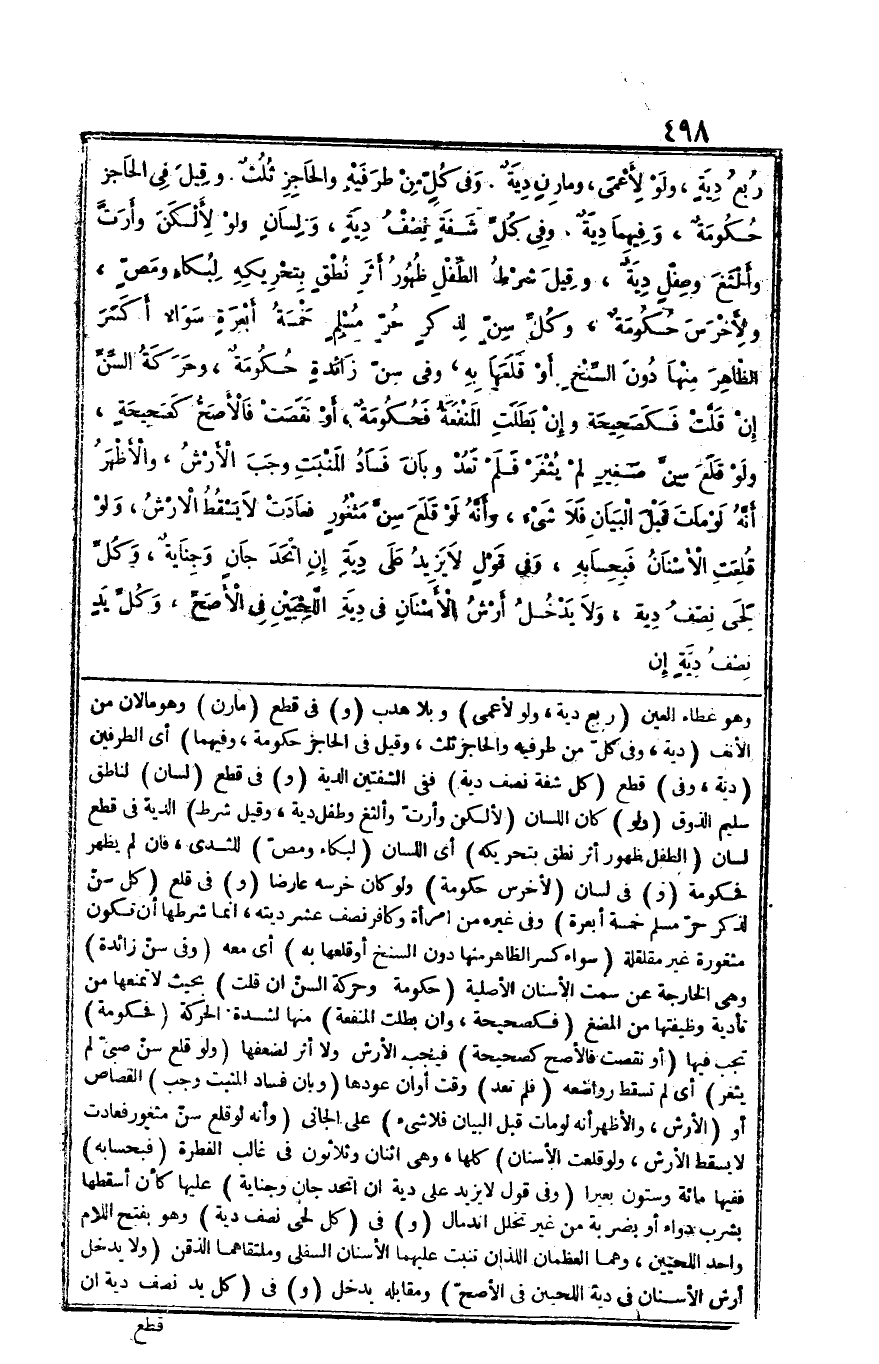 ٤٩٨
رُبُعُ دِيَةٍ ، ولَوْ لِأَعْمَى ، ومارِنٍ دِيَةٌ . وَفى كُلٍّ مِنْ طَرَفَيْهِ والحَاجِزِ ثُلُثٌ . وقِيلَ فِى الحَاجِزِ
حُكُومَةٌ ، وَفِيهِما دِيَةٌ . وفِى كُلِّ شَفَةٍ نِصْفُ دِيَةٍ ، وَلِسانٍ ولوْ لِأَلْكَنَ وأَرَتَّ
وأَلْثَغَ وطِفْلٍ دِيَةٌ ، وقِيلَ شَرْطُ الطِّفْلِ ظُهُورُ أَثَرِ نُطْقٍ بِتَحْرِيكِهِ لِبُكاءٍ ومَصٍّ ،
ولِأَخْرَسَ حُكُومَةٌ ، وَكُلِّ سِنٍّ لِذَكَرٍ حُرٍّ مُسْلِمٍ خَمْسَةُ أَبْعِرَةٍ سَوَاءٌ أَكَسَرَ
الظَّاهِرَ مِنْهَا دُونَ السِّنْخِ أَوْ قَلَعَهَا بِهِ ، وفى سِنٍّ زَائدةٍ حُكُومَةٌ ، وحَرَكَةُ السِّنِّ
إِنْ قَلَّتْ فَكَصَحِيحَة وإِنْ بَطَلَتِ المَنْفَعَةُ فَحُكُومَةٌ ، أَوْ نَقَصَتْ فَالْأَصَحُّ كَصَحِيحَةٍ ،
ولَوْ قَلَعَ سِنَّ صَغِيرٍ لَمْ يُثْغَرْ فَلَمْ تَعُدْ وبَانَ فَسَادُ المَنْبَتِ وجَبَ الْأَرْشُ ، والْأَظْهَرُ
أَنَّهُ لَوْ مَاتَ قَبْلَ الْبَيَانِ فَلَا شَىْءَ ، وأَنَّهُ لَوْ قَلَعَ سِنَّ مَثْغُورٍ فعَادَتْ لَا يَسْقُطُ الْأَرْشُ ، وَلَوْ
قُلِعَتِ الْأَسْنَانُ فَبِحِسَابِهِ ، وَفِى قَوْلٍ لَا يَزِيدُ عَلَى دِيَةٍ إِنِ اتَّحَدَ جَانٍ وَجِنَايَةٌ ، وَكُلِّ
لَحْىٍ نِصْفُ دِيةٍ ، وَلَا يَدْخُلُ أَرْشُ الْأَسْنَانِ فى دِيَةِ اللَّحْيَيْنِ فِى الْأَصَحِّ ، وَكُلِّ يَدٍ
نِصْفُ دِيَةٍ إِن
وهو غطاء العين ( ربع دية ، ولو لأعمى ) وبلا هدب ( و ) فى قطع ( مارن ) وهو مالان من
الأنف ( دية ، وفى كلّ من طرفيه والحاجز ثلث ، وقيل فى الحاجز حكومة ، وفيهما ) أى الطرفين
( دية ، وفى ) قطع ( كل شفة نصف دية ) ففى الشفتين الدية ( و ) فى قطع ( لسان ) لناطق
سليم الذوق ( ولو ) كان اللسان ( لألكن وأرتّ وألثغ وطفل دية ، وقيل شرط ) الدية فى قطع
لسان ( الطفل ظهور أثر نطق بتحريكه ) أى اللسان ( لبكاء ومصّ ) للثدى ، فان لم يظهر
فحكومة ( و ) فى لسان ( لأخرس حكومة ) ولو كان خرسه عارضا ( و ) فى قلع ( كل سنّ
لذكر حرّ مسلم خمسة أبعرة ) وفى غيره من امرأة وكافر نصف عشر ديته ، انما شرطها أن تكون
مثغورة غير مقلقلة ( سواء كسر الظاهر منها دون السنخ أو قلعها به ) أى معه ( وفى سنّ زائدة )
وهى الخارجة عن سمت الأسنان الأصلية ( حكومة وحركة السنّ ان قلت ) بحيث لا تمنعها من
تأدية وظيفتها من المضغ ( فكصحيحة ، وان بطلت المنفعة ) منها لشدة الحركة ( فحكومة )
تجب فيها ( أو نقصت فالأصح كصحيحة ) فيجب الأرش ولا أثر لضعفها ( ولو قلع سنّ صبىّ لم
يثغر ) أى لم تسقط رواضعه ( فلم تعد ) وقت أوان عودها ( وبان فساد المنبت وجب ) القصاص
أو ( الأرش ، والأظهر أنه لو مات قبل البيان فلا شىء ) على الجانى ( وأنه لو قلع سنّ مثغور فعادت
لا يسقط الأرش ، ولو قلعت الأسنان ) كلها ، وهى اثنان وثلاثون فى غالب الفطرة ( فبحسابه )
ففيها مائة وستون بعيرا ( وفى قول لا يزيد على دية ان اتحد جان وجناية ) عليها كأن أسقطها
بشرب دواء أو بضربة من غير تخلل اندمال ( و ) فى ( كل لحى نصف دية ) وهو بفتح اللام
واحد اللحيين ، وهما العظمان اللذان تنبت عليهما الأسنان السفلى وملتقاهما الذقن ( ولا يدخل
أرش الأسنان فى دية اللحيين فى الأصحّ ) ومقابله يدخل ( و ) فى ( كل يد نصف دية ان
قطع